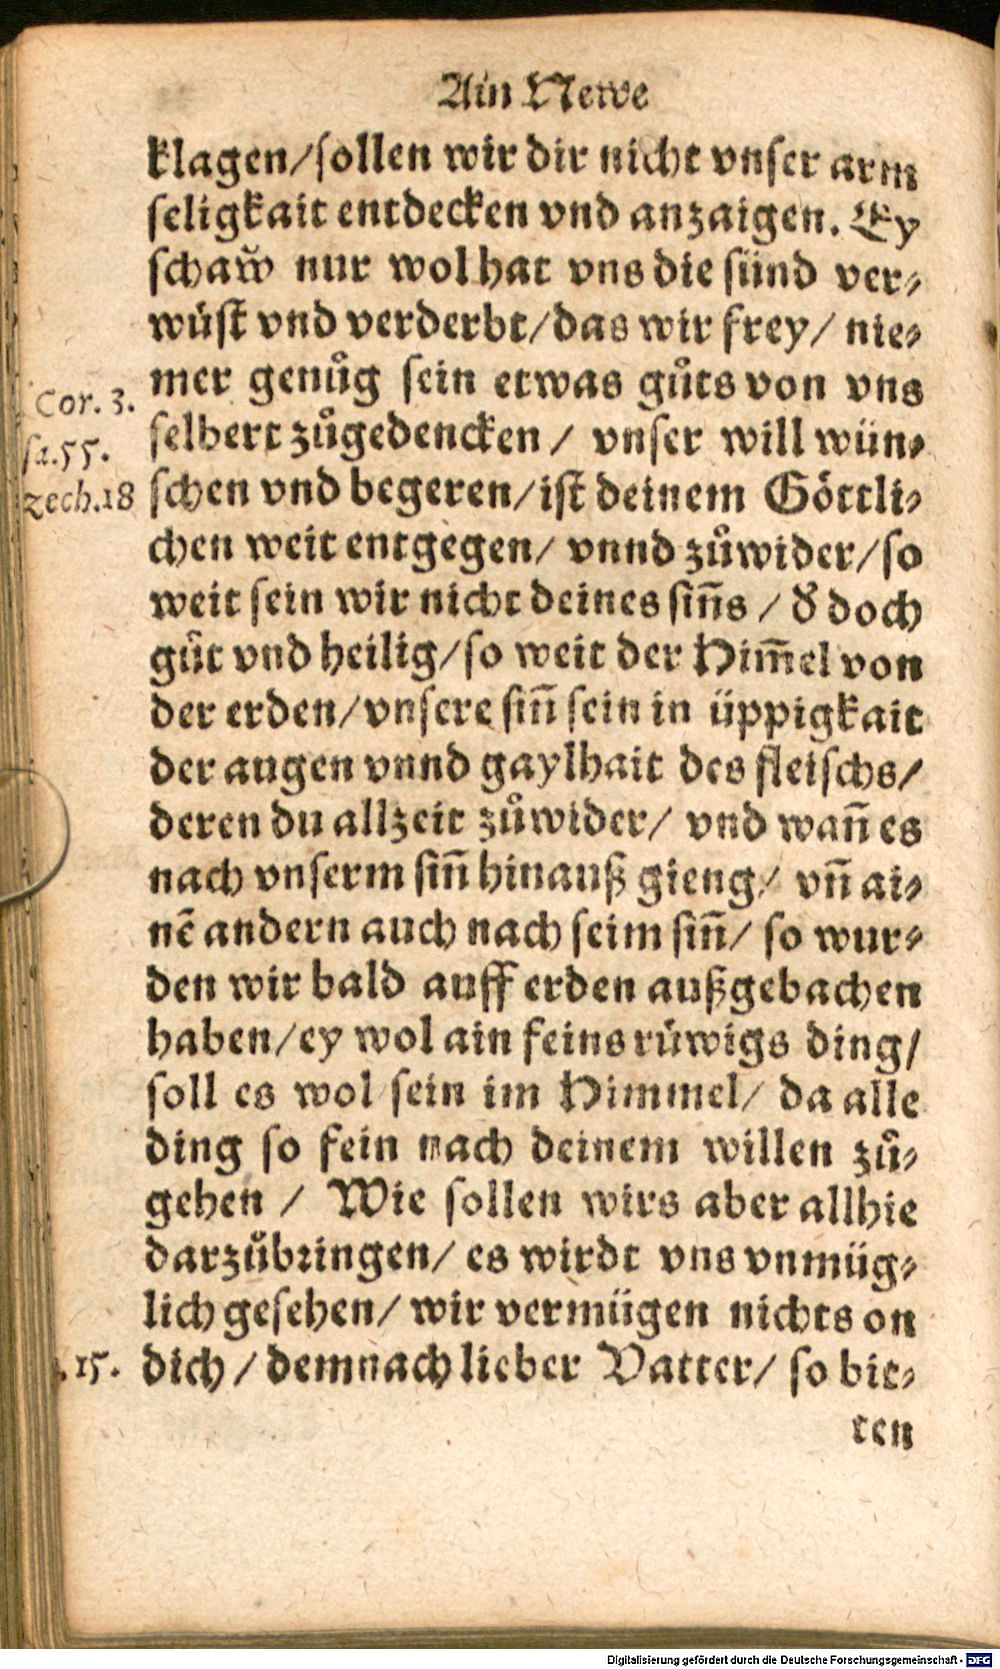 Ain Newe
klagen/sollen wir dir nicht vnser arm
seligkait entdecken vnd anzaigen. Ey
schaw̆ nur wol hat vns die sünd ver⸗
wüst vnd verderbt/das wir frey/ nie⸗
mer genůg sein etwas gůts von vns
Cor. 3.
selbert zůgedencken / vnser will wün⸗
sa.55.
schen vnd begeren/ist deinem Göttli⸗
zech.18
chen weit entgegen/ vnnd zůwider/so
weit sein wir nicht deines sin̄s / d̕ doch
gůt vnd heilig/so weit der Him̄el von
der erden/vnsere sin̄ sein in üppigkait
der augen vnnd gaylhait des fleischs/
deren du allzeit zůwider/ vnd wan̄ es
nach vnserm sin̄ hinauß gieng/ vn̄ ai⸗
nē andern auch nach seim sin̄/ so wur⸗
den wir bald auff erden außgebachen
haben/ey wol ain feins růwigs ding/
soll es wol sein im Himmel/ da alle
ding so fein nach deinem willen zů⸗
gehen / Wie sollen wirs aber allhie
darzůbringen/ es wirdt vns vnmüg⸗
lich gesehen/ wir vermügen nichts on
dich / demnach lieber Vatter/ so bit⸗
15.
ten
Digitalisierung gefördert durch die Deutsche Forschungsgemeinschaft - DFG